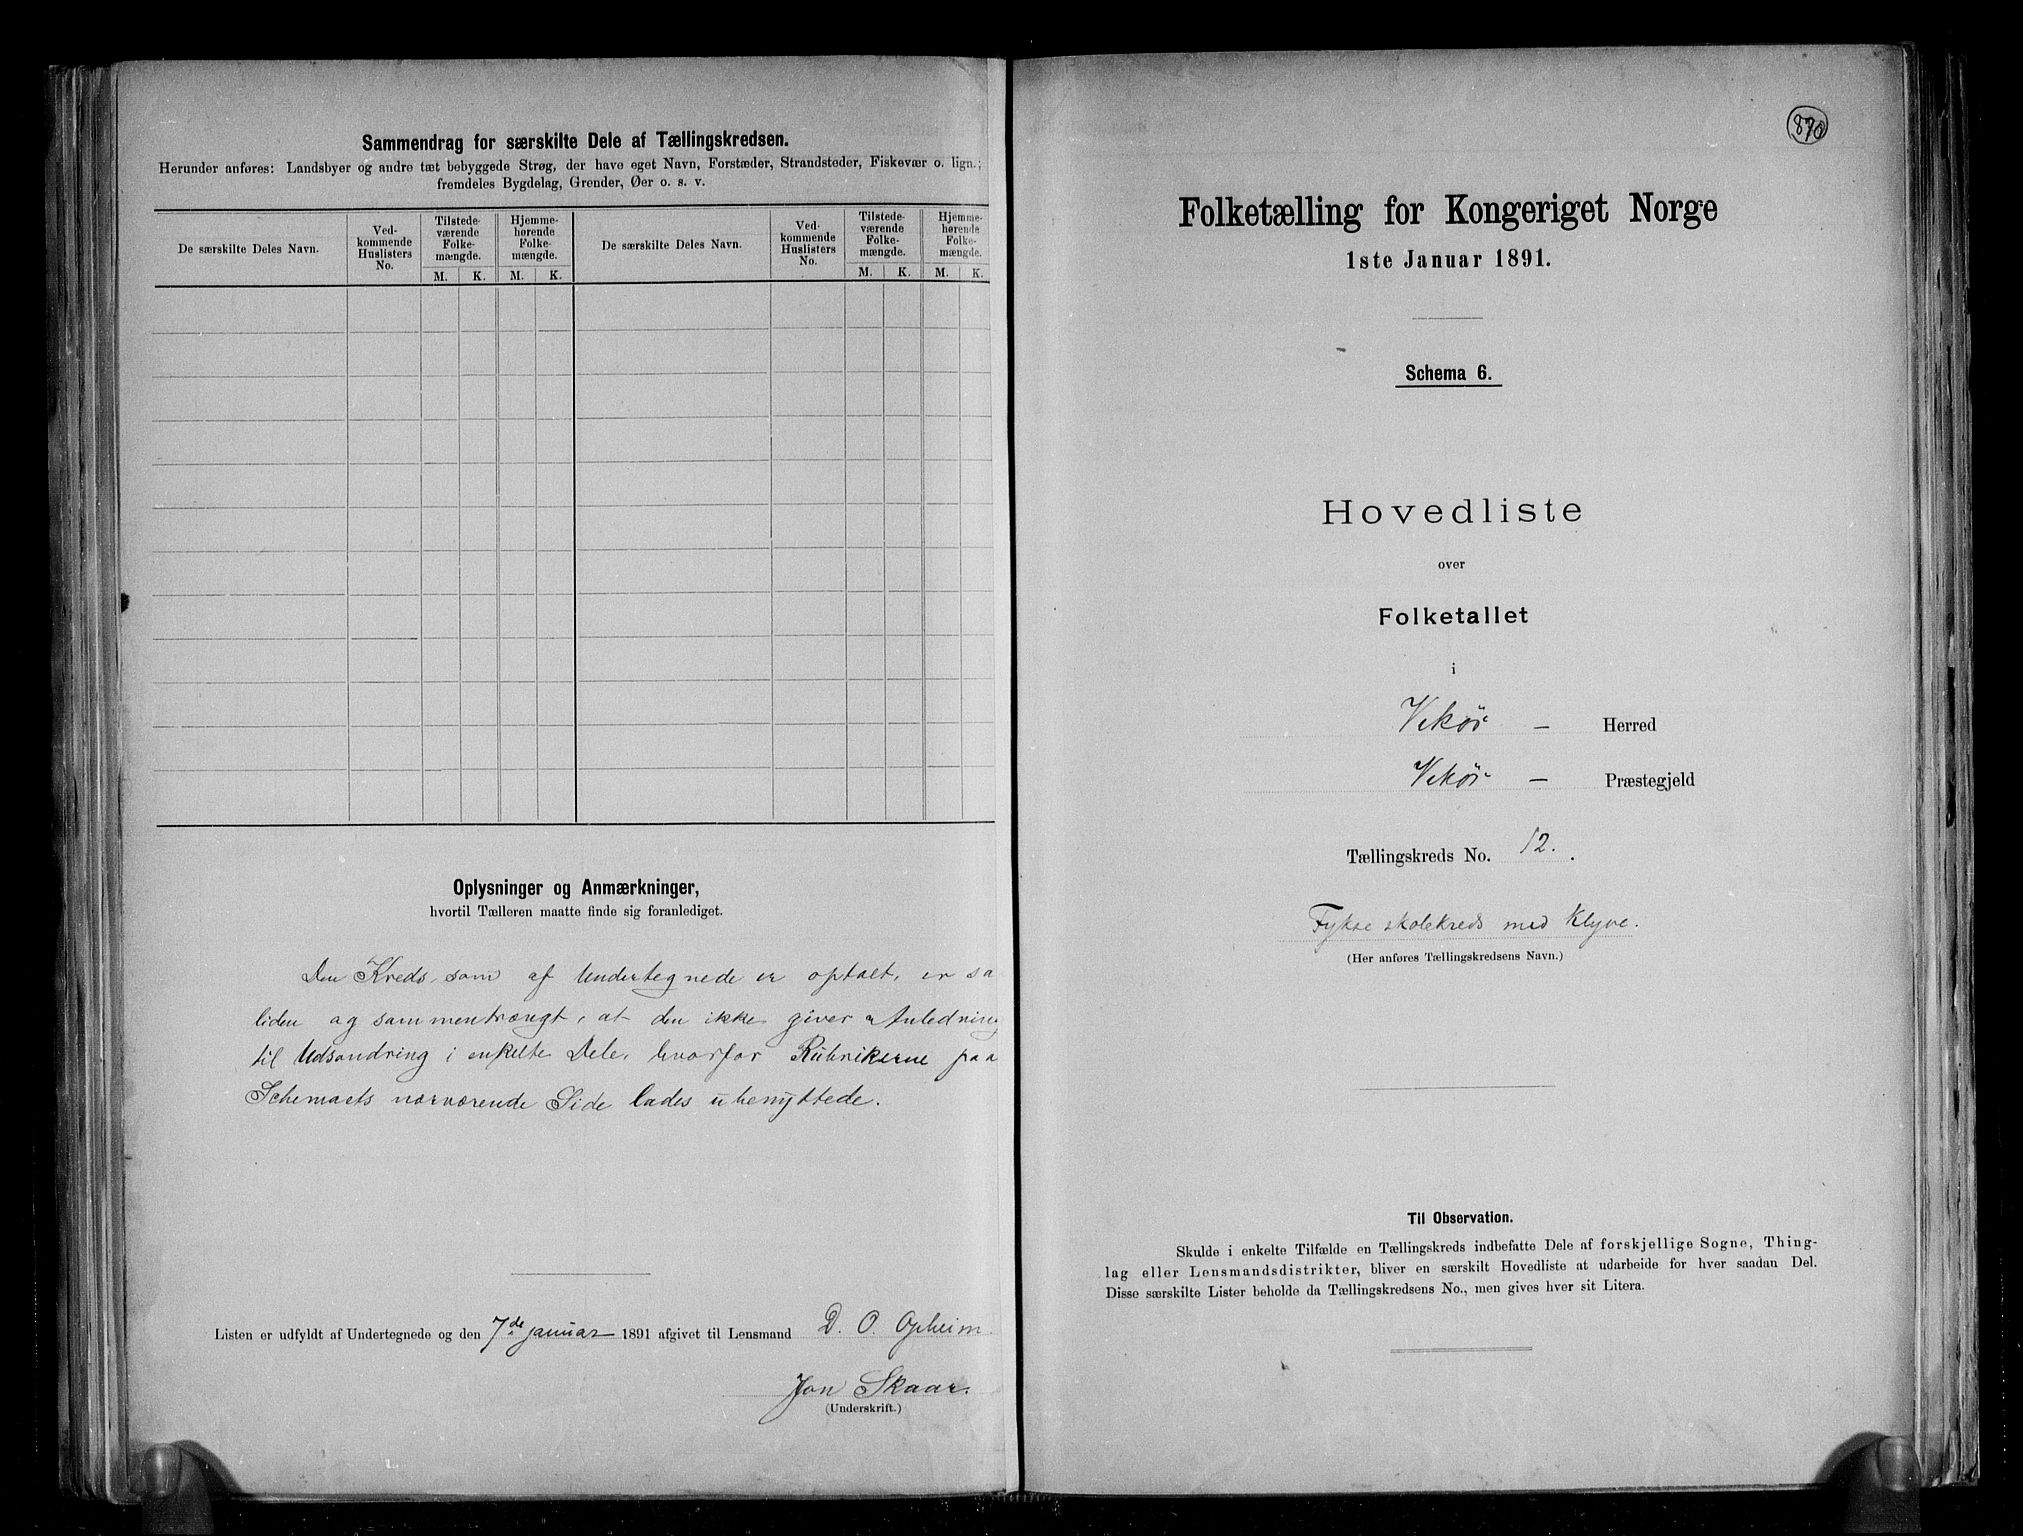 Sammendrag for særskilte Dele af Tællingskredsen.
Herunder anføres: Landsbyer og andre tæt bebyggede Strøg, der have eget Navn, Forstæder, Strandsteder, Fiskevær o. lign.;
fremdeles Bygdelag, Grender, Øer o. s. v.
De særskilte Deles Navn.
Ved-
kommende
Huslisters
No.
Tilstede-
værende
Folke-
mængde.
M. K.
Hjemme-
hørende
Folke-
mængde.
M. K.
De særskilte Deles Navn.
Ved-
kommende
Huslisters
No.
Tilstede-
værende
Folke-
mængde.
M. K.
Hjemme-
hørende
Folke-
mængde.
M. K.
Oplysninger og Anmærkninger,
hvortil Tælleren maatte finde sig foranlediget.
Den Kreds, som af Undertegnede er optalt, er sa
liden og sammentrængt, at den ikke giver Anledning
til Udsondring i enkelte Dele, hvorfor Rubrikerne paa
Schemaets nærværende Side lades ubenyttede.
Listen er udfyldt af Undertegnede og den 7de januar 1891 afgivet til Lensmand D. O. Opheim.
Jon Skaar.
(Underskrift.)
870
Folketælling for Kongeriget Norge
1ste Januar 1891.
Schema 6.
Hovedliste
over
Folketallet
i
Vikør – Herred
Vikør – Præstegjeld
Tællingskreds No. 12.
Fykse skolekreds med Klyve.
(Her anføres Tællingskredsens Navn.)
Til Observation.
Skulde i enkelte Tilfælde en Tællingskreds indbefatte Dele af forskjellige Sogne, Thing-
lag eller Lensmandsdistrikter, bliver en særskilt Hovedliste at udarbeide for hver saadan Del.
Disse særskilte Lister beholde da Tællingskredsens No., men gives hver sit Litera.